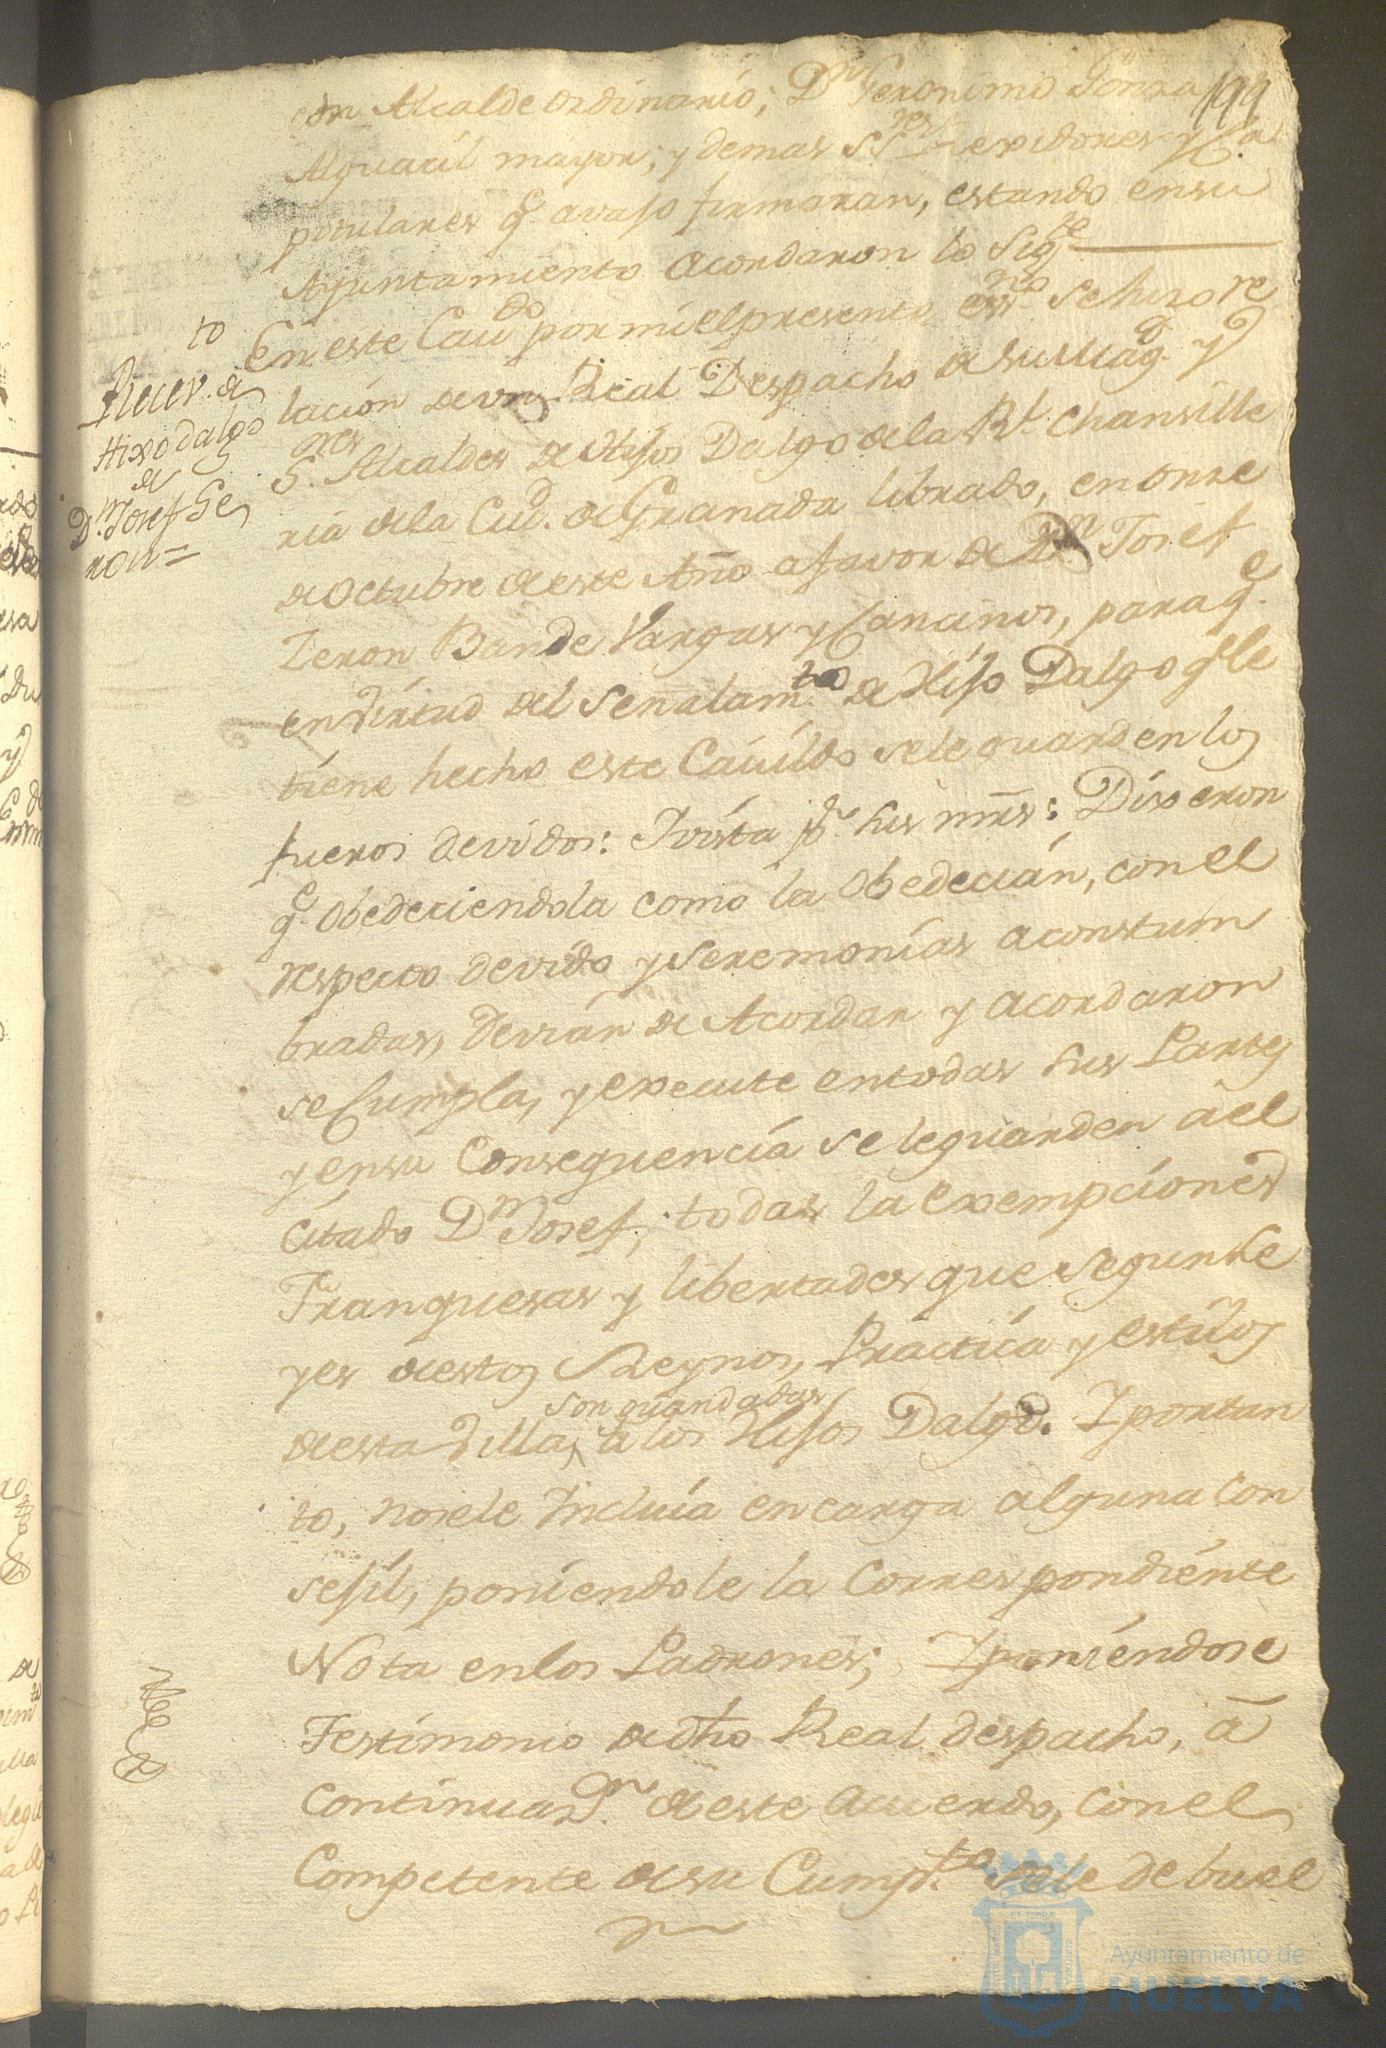 199
Alcalde ordinario; Dn Geronimo Gonza
Alguacil mayor; y demas SSres Rexidores y Ca
pitulares qe avajo firmaran, estando en su
Ayuntamiento acordaron lo Sigte
En este Cavdo por mi el presente essno se hizo re
lacion de vn Real Despacho de su Magd y
Sres Alcaldes de Hijos Dalgo de la Rl Chansille
ria de la Ciud. de Granada librado, en onze
de Octubre de este Año a favor de Dn Josef
Zeron Bande Vargas y Cancinos, para qe
en virtud del señalamto de Hijo Dalgo qe le
tiene hecho este Cavildo se le guarden los
fueros devidos: Y vista pr sus mrs: Dixeron
qe obedeciendola como la obedecian, con el
respecto devido y seremonias acostum
bradas, Devian de Acordar y acordaron
se Cumpla, y execute en todas sus Partes
y en su Conseguencia se le guarden a el
citado Dn Josef, todas la exempciones
Franquesas y libertades que segun Le
yes de estos Reynos, Practica y estilos
de esta Villa, son guardadas a los Hijos Dalgo. Y por tan
to, no se le Incluia en carga alguna con
sejil, poniendole la Correspondiente
Nota en los Padrones; Y poniendose
Testimonio de dho Real despacho, a
Continuan. de este acuerdo, con el
Competente de su Cumpto se le debuel
to
Recev. de
Hixodalgo
de
Dn Josef Se
ron=
Ayuntamiento de
HUELVA